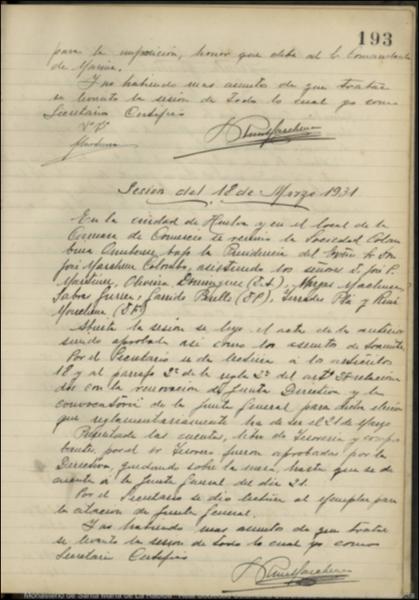 193
para la expedición, honor que debe al Sr Comandante
de Marina.
Y no habiendo mas asuntos de que tratar
se levantó la sesión de todo lo cual yo como
Secretario Certifico
Vº Bº
Sesion del 18 de Marzo 1931
En la ciudad de Huelva y en el local de la
Camara de Comercio se reunio la Sociedad Colom
bina Onubense, bajo la Presidencia del Sr Don
José Marchena Colombo, asistiendo los señores D. José P.
Martinez, Oliveira Dominguez (D. A.), Vargas Machuca,
Jabas, Garrido Perelló (D. P.), Terrades Plá y Ruiz
Marchena (D. F.)
Abierta la sesion se leyó el acta de la anterior
siendo aprobada asi como los asuntos de tramite.
Por el Secretario se da lectura a los articulos
18 y al parrafo 2º de la regla 2ª del artº relaciona
dos con la renovacion de Junta Directiva y la
convocatoria de la Junta General para dicha eleccion
que reglamentariamente ha de ser el 21 de Mayo
las cuentas, libro de Tesoreria y compro
bantes, por el Sr Tesorero fueron aprobadas por la
Directiva, quedando sobre la mesa, hasta que se de
cuenta a la Junta General del dia 21.
Por el Secretario se dió lectura al ejemplar para
la citacion de Junta General.
Y no habiendo mas asuntos de que tratar
se levanto la sesion de todo lo cual yo como
Secretario Certifico